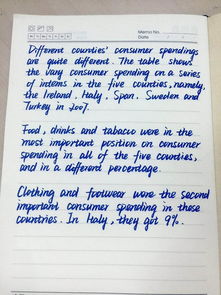 Memo No.
Date
Different counties' consumer spendings
are quite different. The table shows
the vary consumer spending on a series
of intems in the five counties, namely,
the Ireland, Italy, Span, Sweden and
Turkey in 2007.
Food, drinks and tabacco were in the
most important position on consumer
spending in all of the five counties,
and in a different percentage.
Clothing and footwear were the second
important consumer spending in these
countries. In Italy, they got 9%.